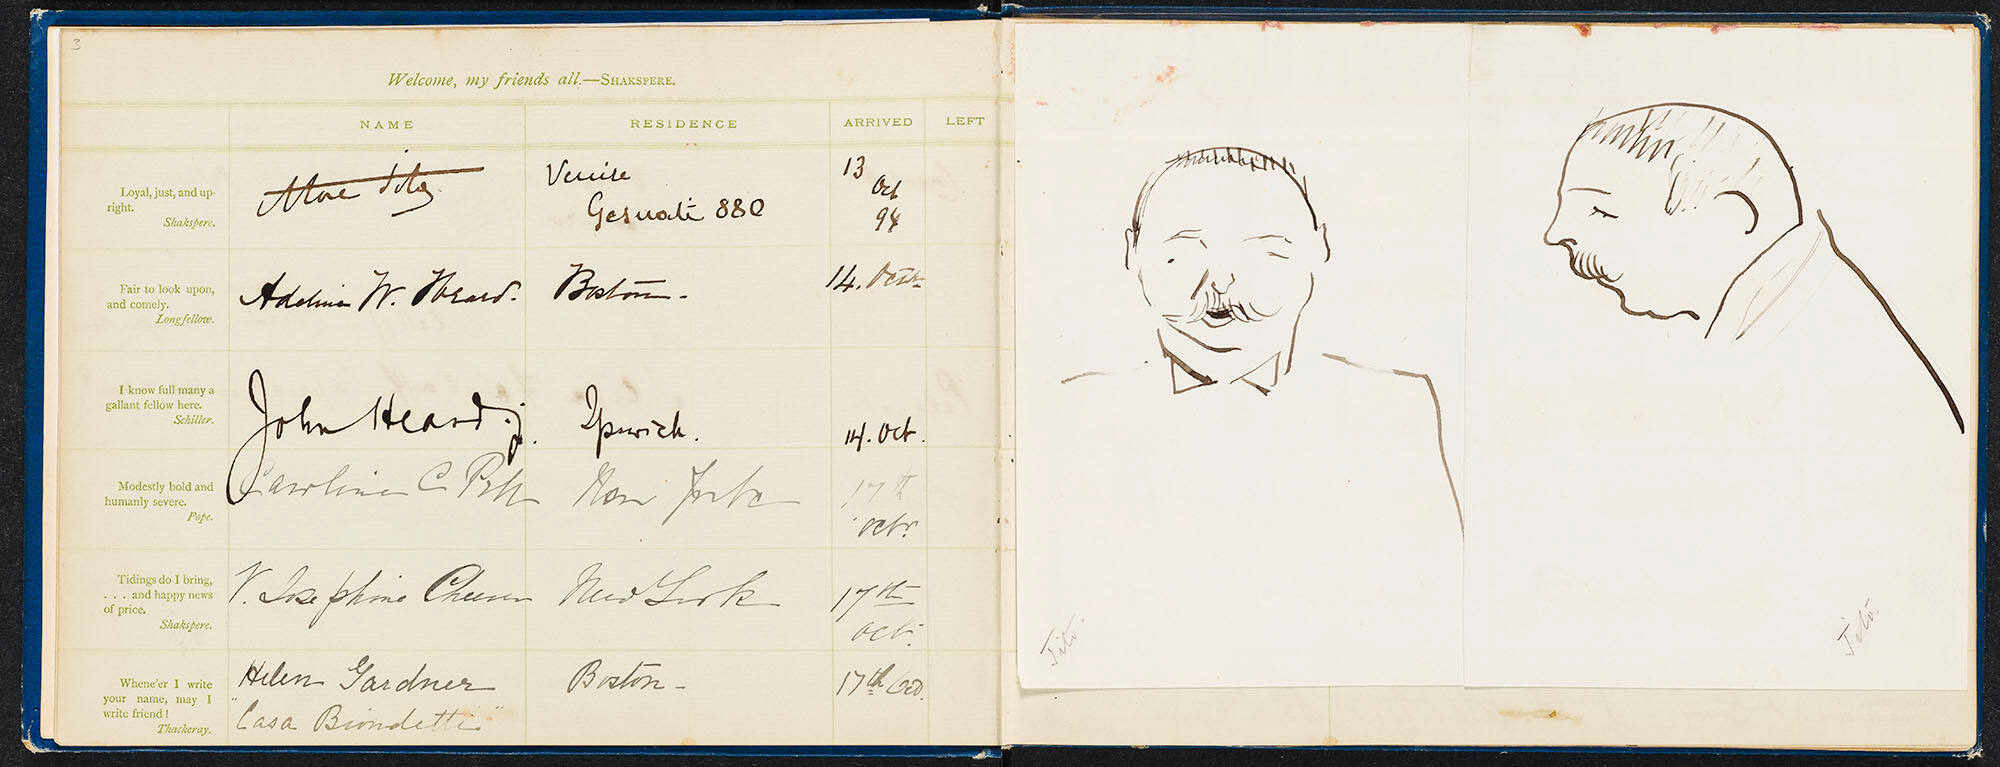 3
Welcome, my friends all.—SHAKSPERE.
NAME RESIDENCE ARRIVED LEFT
Loyal, just, and up-
right.
Shakspere.
Tito
Venise
Gesuati 880
13
Oct
94
Fair to look upon,
and comely.
Longfellow.
Adeline W. Heard.
Boston-
14. Octbr
I know full many a
gallant fellow here.
Schiller.
John Heard jr.
Ipswich.
14. Oct.
Modestly bold and
humanly severe.
Pope.
Caroline C
New York
17th
octr.
Tidings do I bring,
. . . and happy news
of price.
Shakspere.
V. Josephine
New York
17th
oct.
Whene'er I write
your name, may I
write friend!
Thackeray.
Helen Gardner
"Casa Biondetti"
Boston-
17th Oct.
Tito.
Tito.